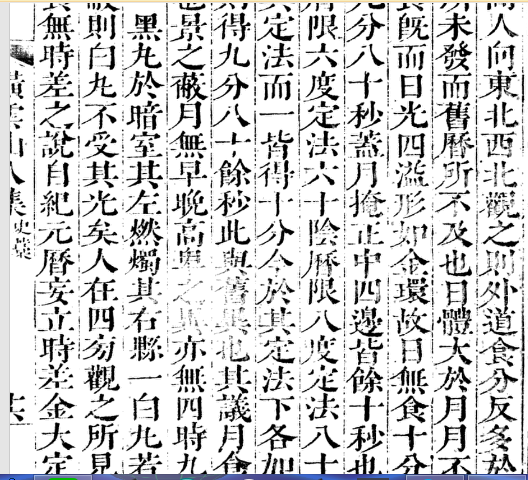 人向東北西北觀之則外道食分反多於
所未發而舊曆所不及也日體大於月月不
食既而日光四溢形如金環故日無食十分
九分八十秒蓋月掩正中四邊皆餘十秒也
曆限六度定法六十陰曆限八度定法八十
其定法而一皆得十分今於其定法下各加
則得九分八十餘秒此與舊異也其議月食
景之蔽月無早晚高卑之異亦無四時九
黑丸於暗室其左燃燭其右縣一白丸若
蔽則白丸不受其光矣人在四旁觀之所見
無時差之說自紀元曆妄立時差金大定
黃雲山人集 史藁